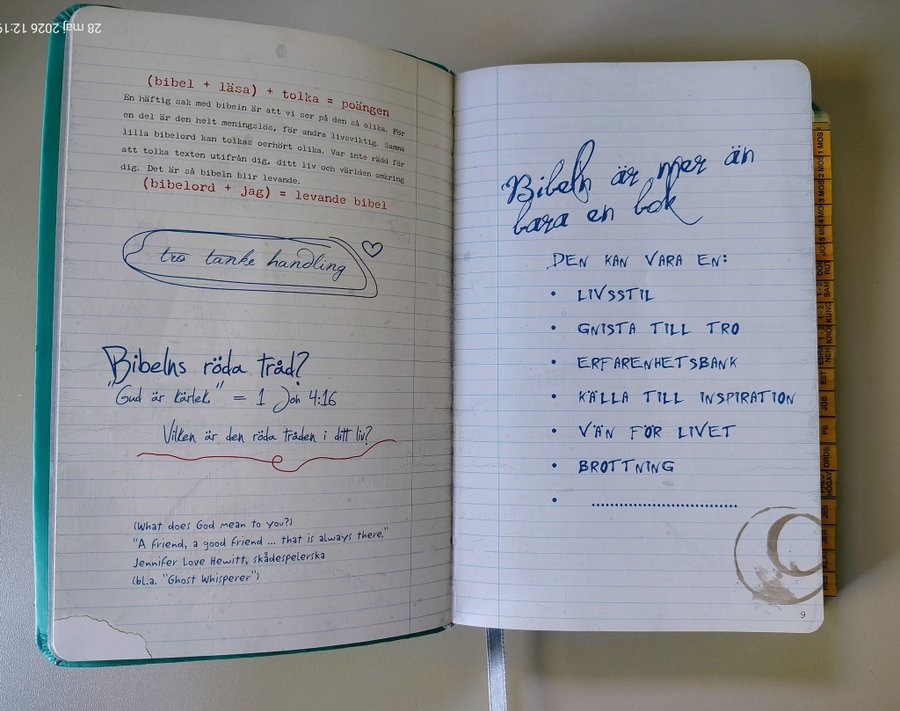 28 maj 2026 12:19
(bibel + läsa) + tolka = poängen
En häftig sak med bibeln är att vi ser på den så olika. För
en del är den helt meningslös, för andra livsviktig. Samma
lilla bibelord kan tolkas oerhört olika. Var inte rädd för
att tolka texten utifrån dig, ditt liv och världen omkring
dig. Det är så bibeln blir levande.
(bibelord + jag) = levande bibel
tro tanke handling
Bibelns röda tråd?
"Gud är kärlek" = 1 Joh 4:16
Vilken är den röda tråden i ditt liv?
(What does God mean to you?)
"A friend, a good friend ... that is always there."
Jennifer Love Hewitt, skådespelerska
(bl.a. "Ghost Whisperer")
Bibeln är mer än
bara en bok
DEN KAN VARA EN:
• LIVSSTIL
• GNISTA TILL TRO
• ERFARENHETSBANK
• KÄLLA TILL INSPIRATION
• VÄN FÖR LIVET
• BROTTNING
• ................................
9
1 MOS
2 MOS
3 MOS
4 MOS
5 MO
JOS
DOM
RUT
1 - 2
SAM
1 - 2
KUNG
1 - 2
KRÖ
ESRA
NEH
EST
JOB
PS
ORDS
HÖGA V
JES
JER